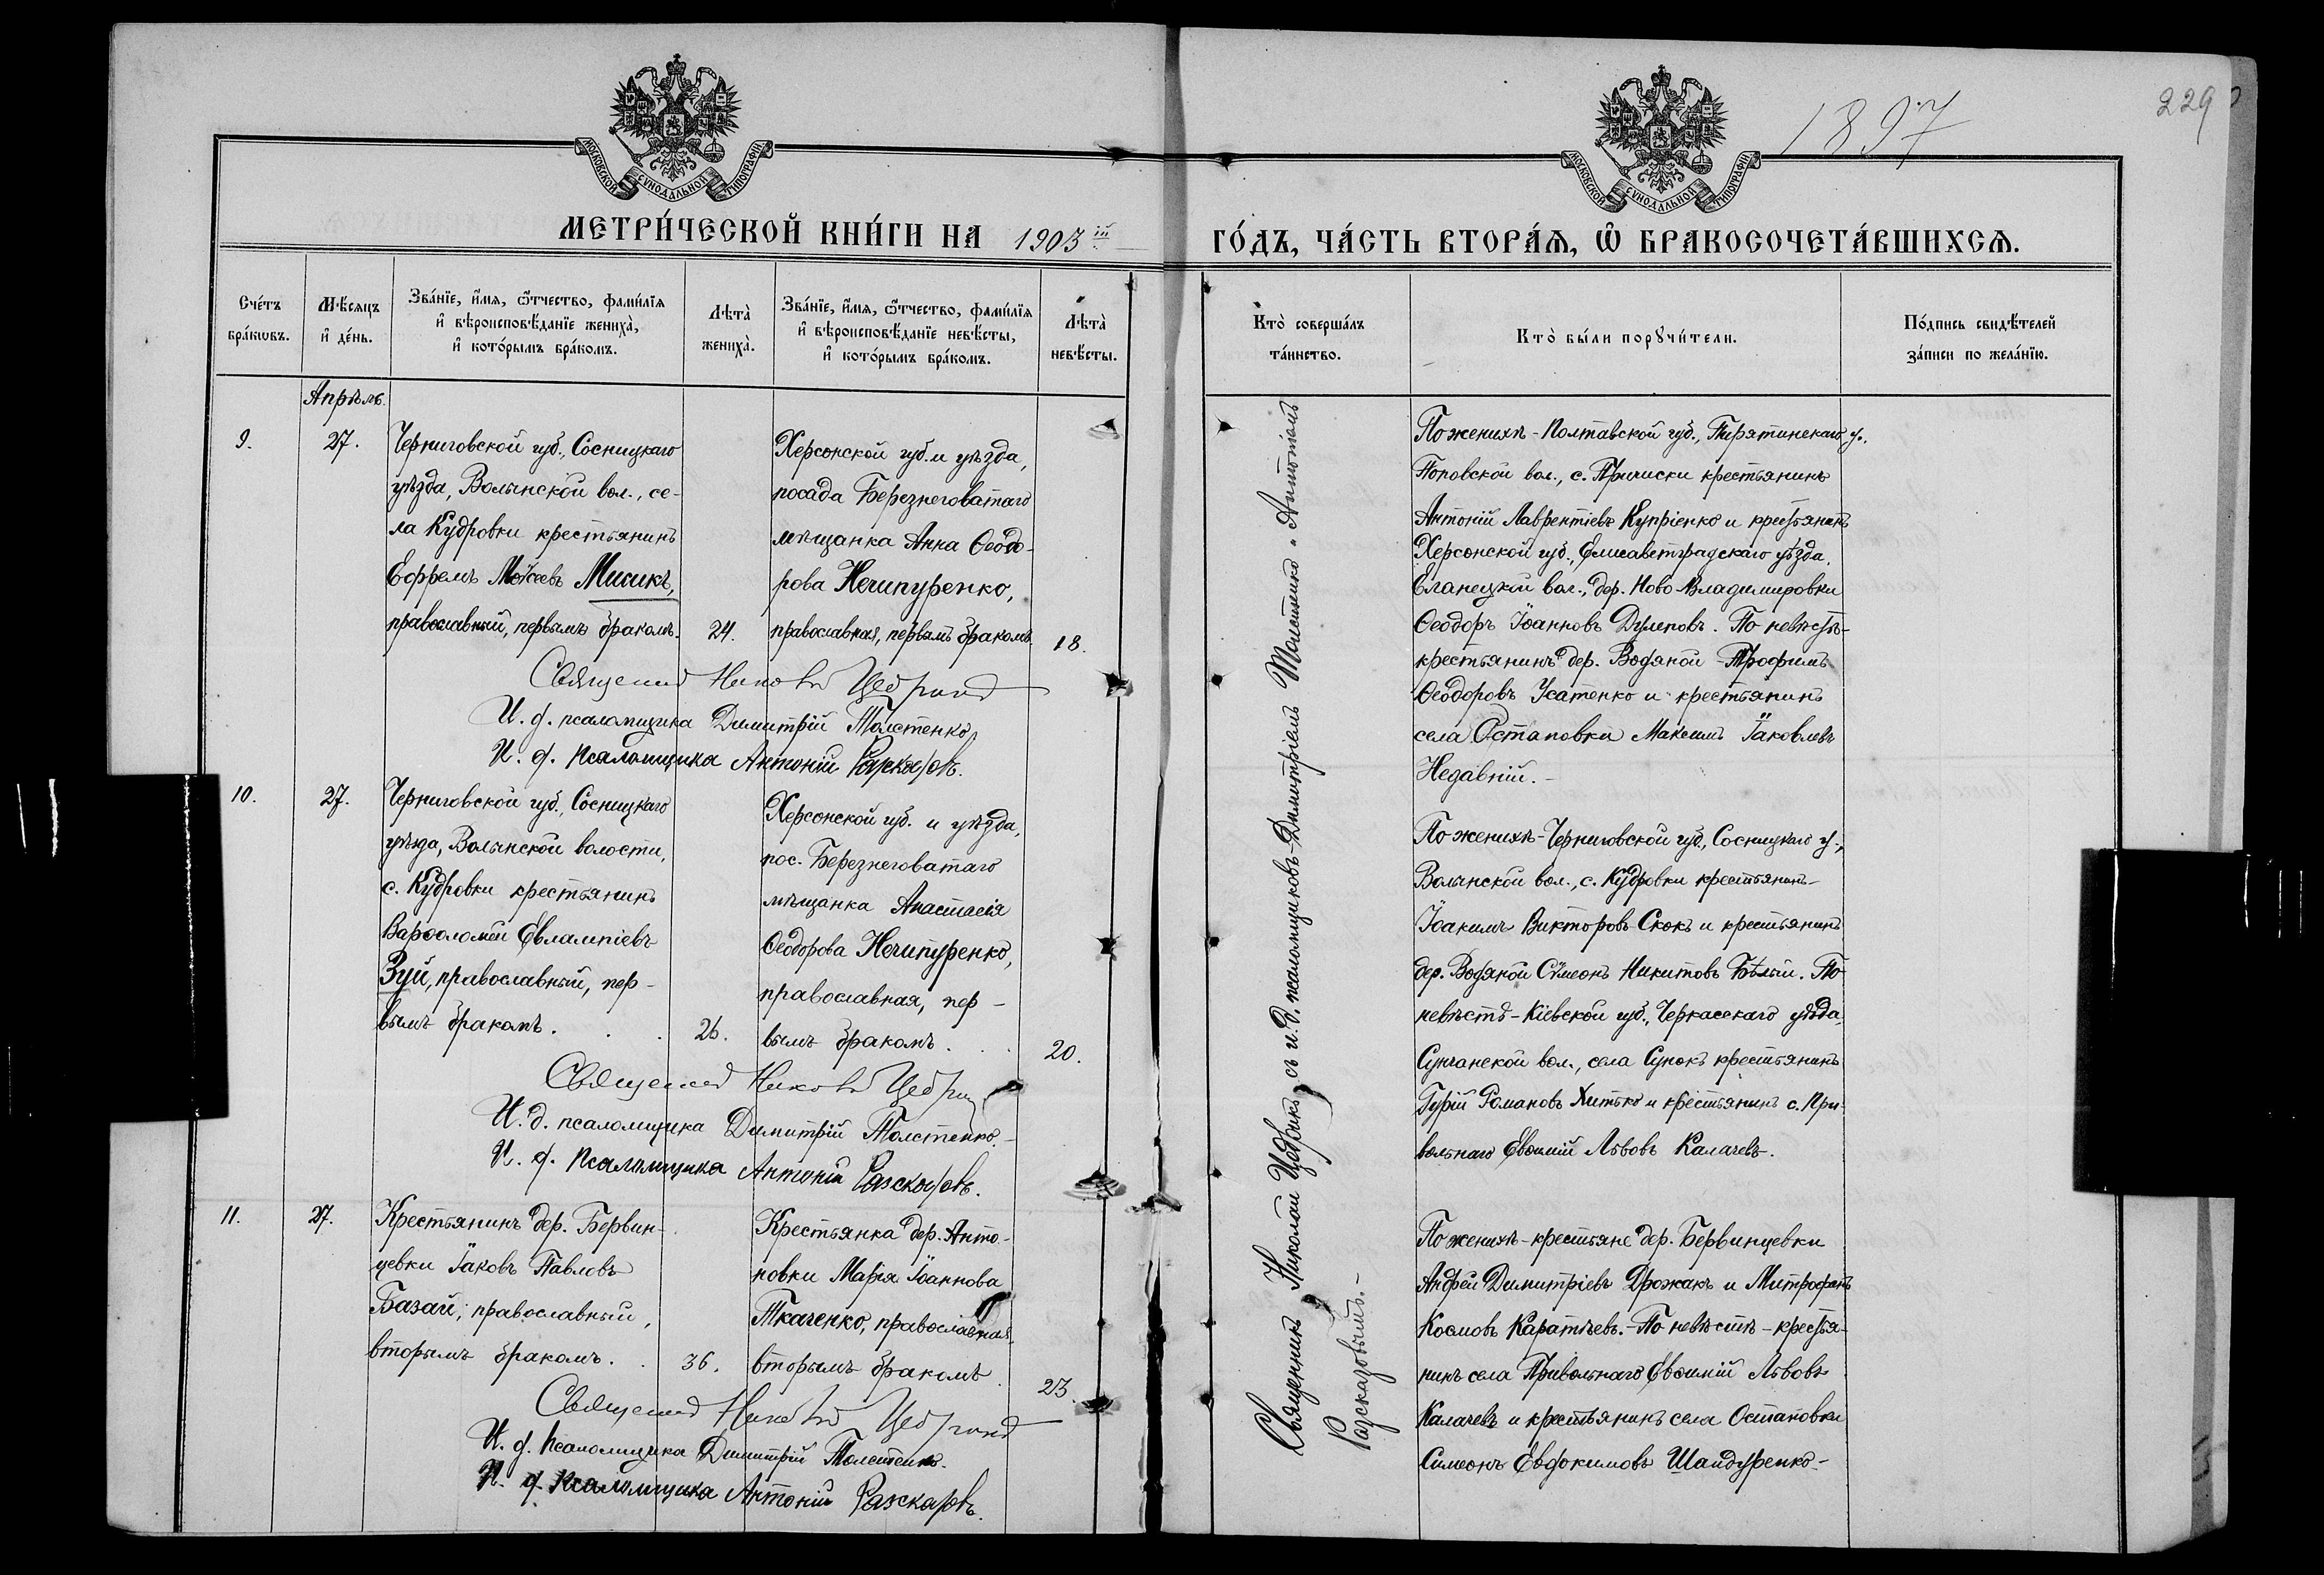 1897
229
МОСКОВСКОЙ СѴНОДАЛЬНОЙ ТИПОГРАФІИ
МОСКОВСКОЙ СѴНОДАЛЬНОЙ ТИПОГРАФІИ
МЕТРИ́ЧЕСКОЙ КНИ́ГИ НА 1903 ій ГО́ДЪ, ЧА́СТЬ ВТОРА́Ѧ, Ѽ БРАКОСОЧЕТА́ВШИХСѦ.
Сче́тъ
бра́кѡвъ.
Мѣ́сяцъ
и҆ де́нь.
Зва́нїе, и҆́мя, ѻ҆́тчество, фами́лїя
и҆ вѣроисповѣ́данїе жениха̀,
и҆ кото́рымъ бра́комъ.
Лѣта̀
жениха̀.
Зва́нїе, и҆́мя, ѻ҆́тчество, фами́лїя
и҆ вѣроисповѣ́данїе невѣ́сты,
и҆ кото́рымъ бра́комъ.
Лѣта̀
невѣ́сты.
Кто̀ соверша́лъ
та́инство.
Кто̀ бы́ли порꙋчи́тели.
По́дпись свидѣ́телей
за́писи по жела́нїю.
Апрѣль.
9.
27.
Черниговской губ., Сосницкаго
уѣзда, Волынской вол., се-
ла Кудровки крестьянинъ
Ефремъ Моѵсеевъ Мисикъ,
православный, первымъ бракомъ.
24.
Херсонской губ. и уѣзда,
посада Березнеговатаго
мѣщанка Анна Ѳеодо-
рова Нечипуренко,
православная, первымъ бракомъ.
18.
Священникъ Николай Цедрикъ
И. д. псаломщика Димитрій Толстенко
И. д. псаломщика Антоній Разсказовъ.
10.
27.
Черниговской губ., Сосницкаго
уѣзда, Волынской волости,
с. Кудровки крестьянинъ
Варѳоломей Евлампіевъ
Зуй, православный, пер-
вымъ бракомъ.
26.
Херсонской губ. и уѣзда,
пос. Березнеговатаго
мѣщанка Анастасія
Ѳеодорова Нечипуренко,
православная, пер-
вымъ бракомъ.
20.
Священникъ Николай Цедрикъ
И. д. псаломщика Димитрій Толстенко.
И. д. псаломщика Антоній Разсказовъ.
11.
27.
Крестьянинъ дер. Бервин-
цевки Іаковъ Павловъ
Базай, православный,
вторымъ бракомъ.
36.
Крестьянка дер. Анто-
новки Марія Іоаннова
Ткаченко, православная
вторымъ бракомъ.
23.
Священникъ Николай Цедрикъ
И. д. псаломщика Димитрій Толстенко.
И. д. псаломщика Антоній Разсказовъ.
Священникъ Николай Цедрикъ съ и. д. псаломщиковъ Димитріемъ Толстенко и Антоніемъ
Разсказовымъ.
По женихѣ - Полтавской губ., Пирятинскаго у.,
Поповской вол., с. Причиски крестьянинъ
Антоній Лаврентіевъ Купріенко и крестьянинъ
Херсонской губ., Елисаветградскаго уѣзда,
Еланецкой вол., дер. Ново-Владимировки
Ѳеодоръ Іоанновъ Дулеповъ. По невѣстѣ-
крестьянинъ дер. Водяной Трофимъ
Ѳеодоровъ Усатенко и крестьянинъ
села Остаповки Максимъ Іаковлевъ
Недавній.
По женихѣ - Черниговской губ., Сосницкаго у.,
Волынской вол., с. Кудровки крестьянинъ
Іоакимъ Викторовъ Скокъ и крестьянинъ
дер. Водяной Сѵмеонъ Никитовъ Бѣлый. По
невѣстѣ - Кіевской губ., Черкасскаго уѣзда,
Сунчанской вол., села Сунокъ крестьянинъ
Гурій Романовъ Хитько и крестьянинъ с. При-
вольнаго Евѳимій Львовъ Калачевъ.
По женихѣ - крестьяне дер. Бервинцевки
Андрей Димитріевъ Дрожакъ и Митрофанъ
Космовъ Каратѣевъ. - По невѣстѣ - крестья-
нинъ села Привольнаго Евѳимій Львовъ
Калачевъ и крестьянинъ села Остаповки
Симеонъ Евдокимовъ Шандуренко.